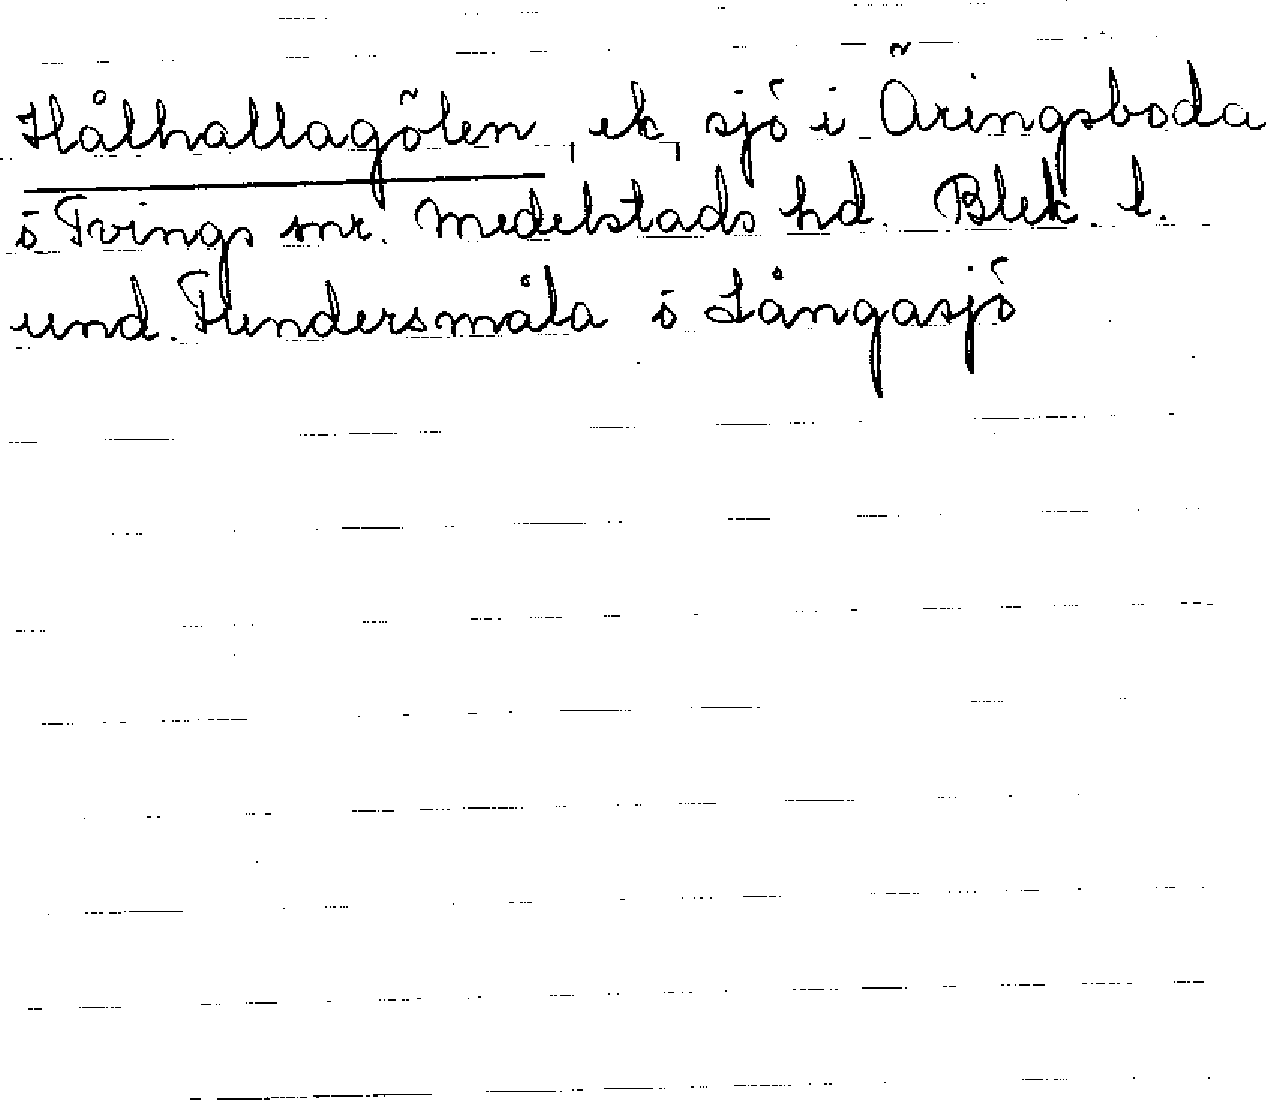 Hålhallagölen, ek, sjö i Äringsboda
i Tvings snr. Medelstads hd. Blek. l.
und. Flendersmåla i Långasjö